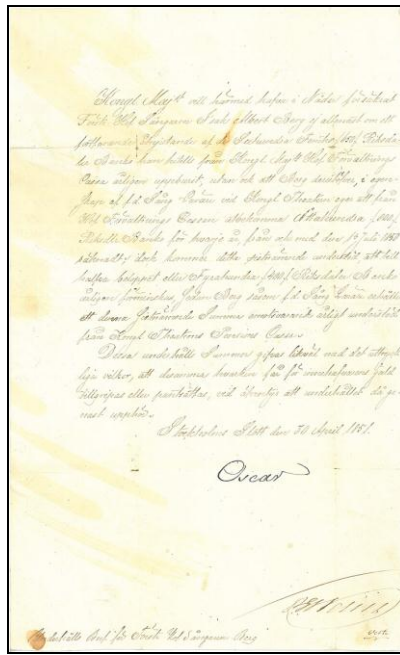 Kongl Maj:t vill härmed hafva i Nåder förklarat
Förste Hof Sångaren Isak Albert Berg ej allenast
fortfarande åtnjutande af de Sexhundra Femtio /650/ Riksda-
ler Banko han hittills från Kongl Maj:ts Hof Förvaltnings
Cassa årligen uppburit, utan och att Berg derutöfver, i egen-
skap af f.d. Sång Lärare vid Kongl Theatern eger att från
Hof Förvaltnings Cassan åtnjuta Åttahundra /800/
Riksdlr Banko för hvarje år, från och med den 1:a Juli
dock kommer detta underhåll att till
halfva beloppet eller Fyrahundra /400/ Riksdaler Banko
årligen förminskas, sedan Berg såsom f.d. Sång Lärare erhållit
ett denna sistnämnde Summa motsvarande årligt underhåll
från Kongl Theaterns Pensions Cassa.
Dessa underhålls Summor gifvas likväl med det uttryck-
liga vilkor, att desamma hvarken får för innehafvarens gäld
tillgripas eller pantsättas, vid äfventyr att underhållet då ge-
nast upphör.
Stockholms Slott den 30 April 1851.
Oscar
Underhålls Bref för Förste Hof Sångaren Berg